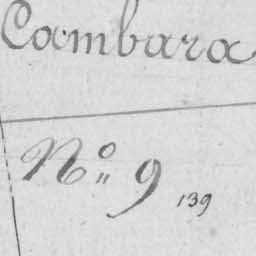 Cambara
Nº 9 139